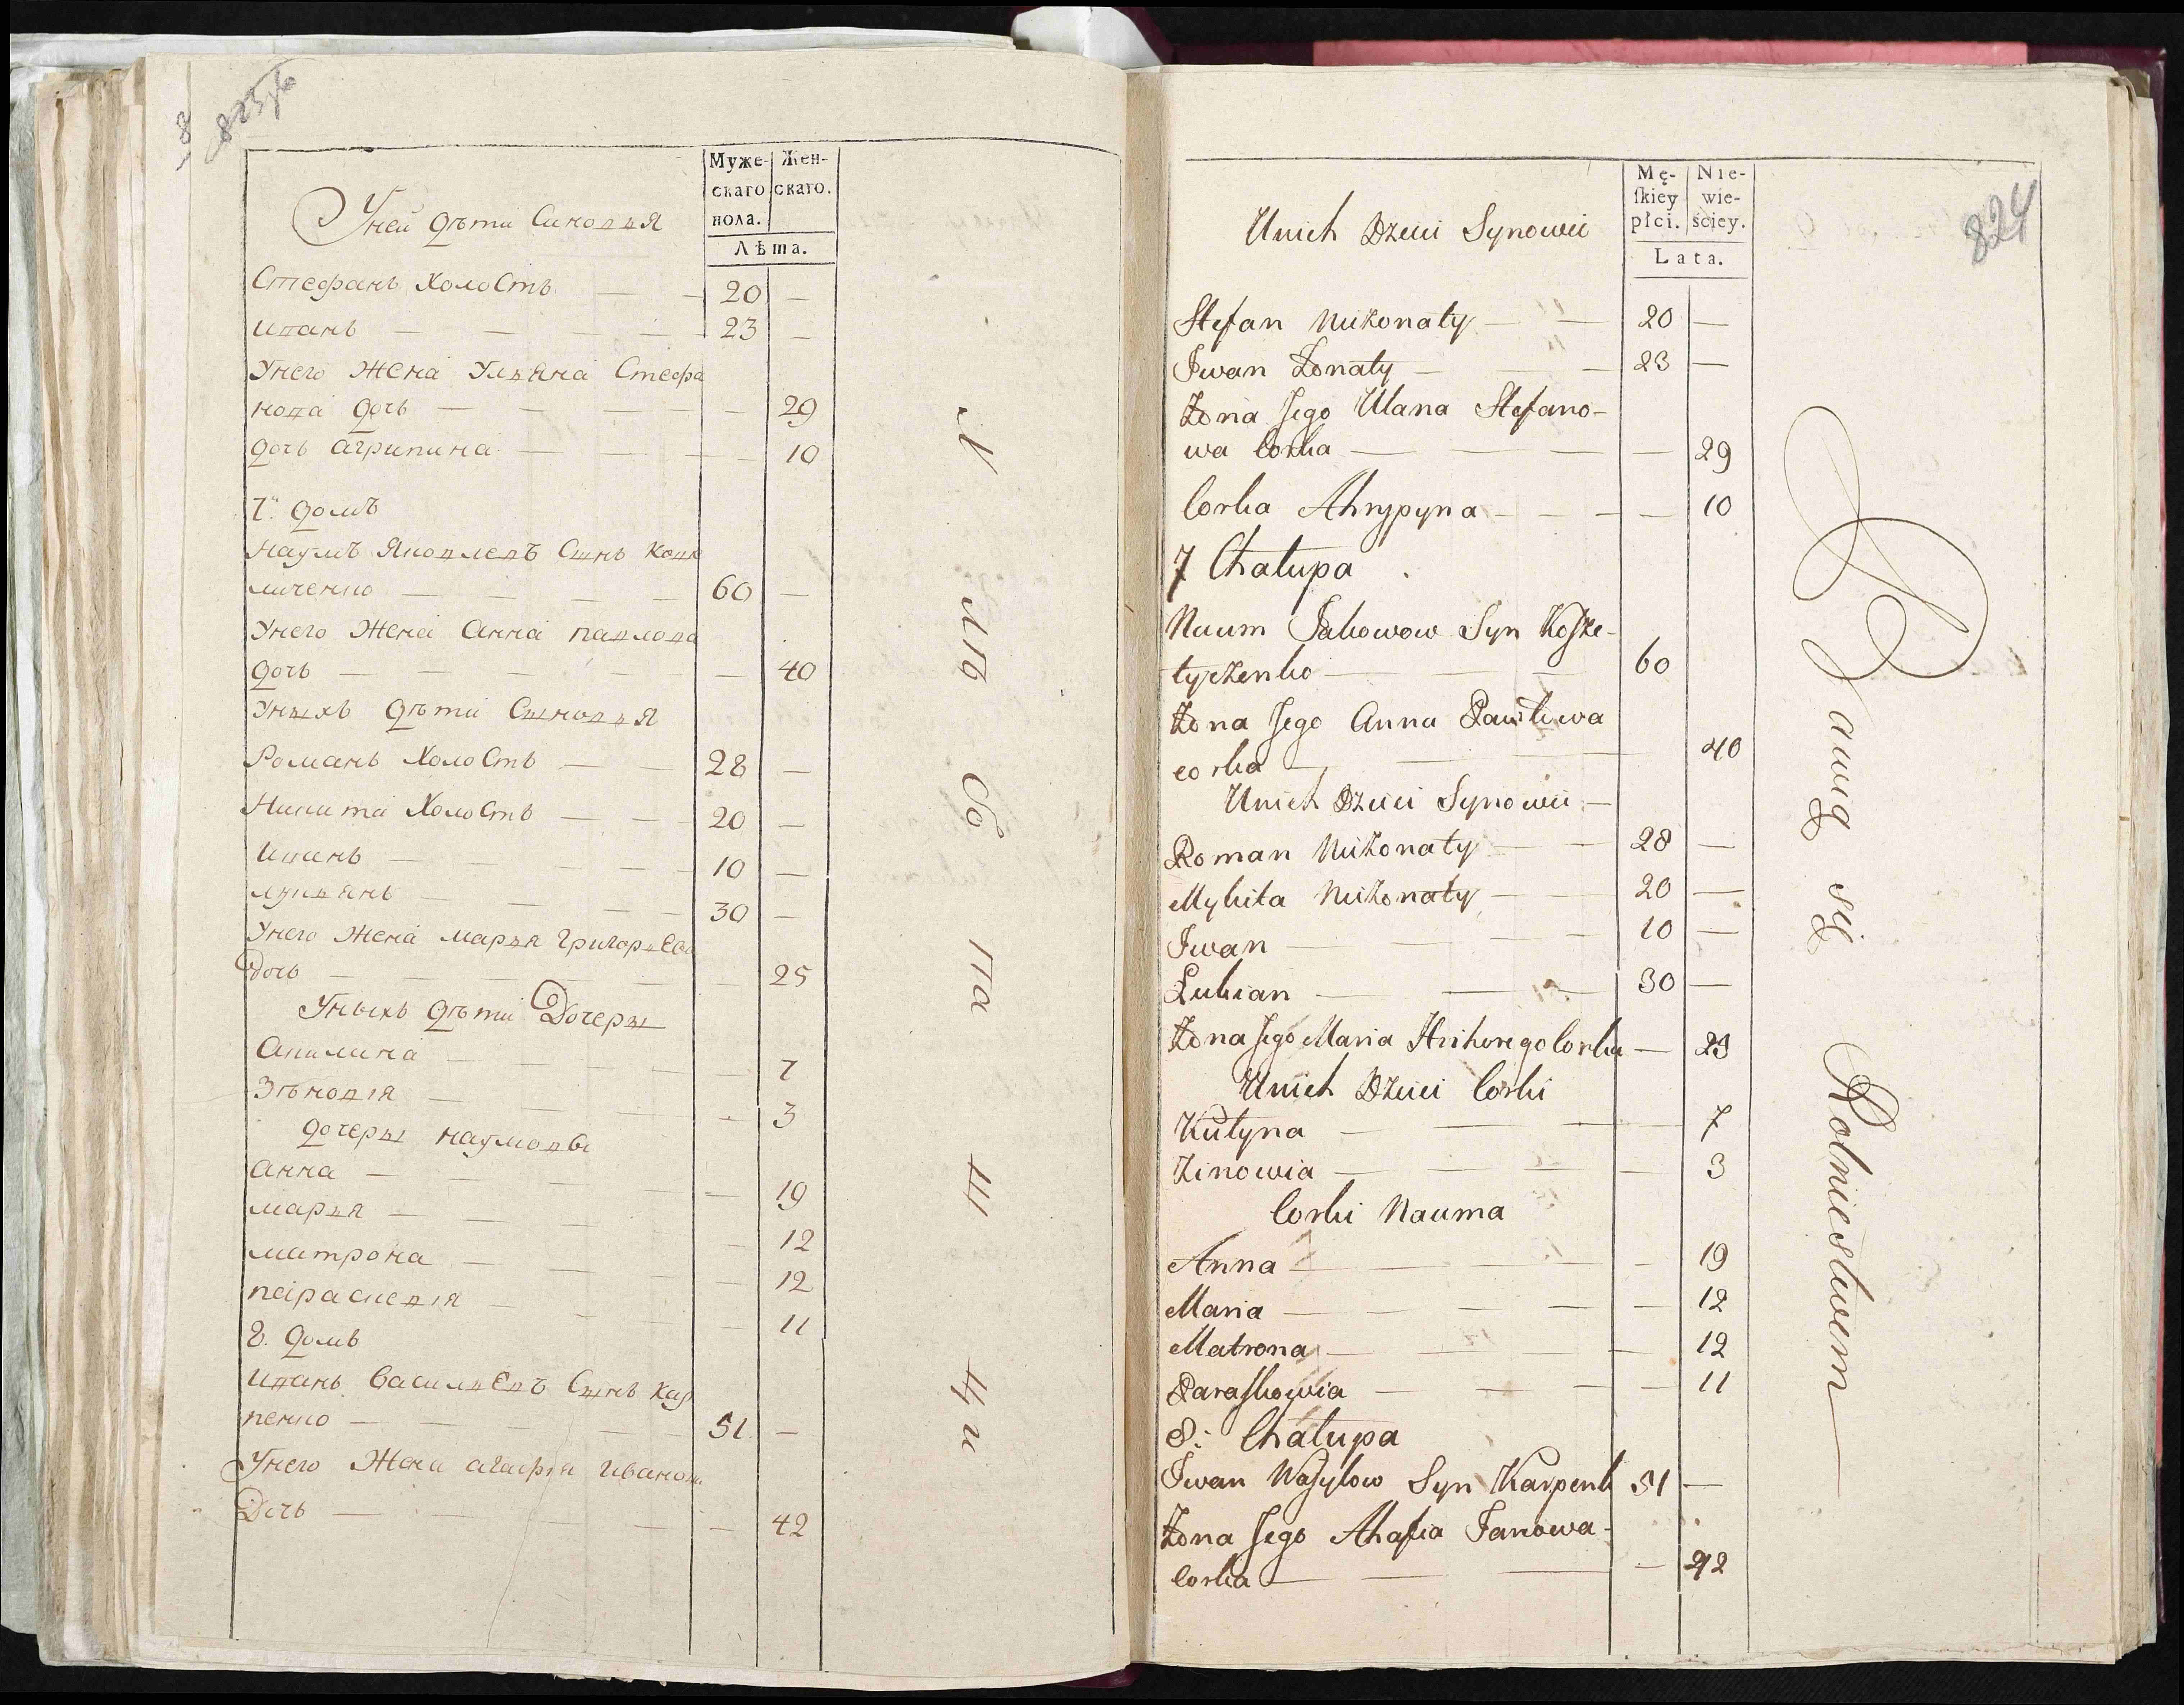 823
Муже-
скаго
пола.
Жен-
скаго.
Лѣта.
Уней дѣти Синовья
Стефанъ холостъ — — 20 —
Иванъ — — — — 23 —
Унего жена Ульяна Стефа
нова дочь — — — — — 29
дочь агрипина — — — — 10
7. домъ
Наумъ Яковлевъ Сынъ
личенко — — — — 60 —
Унего жена Анна павлова
дочь — — — — — — 40
Уныхъ дѣти Сыновья
Романъ холостъ — — 28 —
Никита холостъ — — 20 —
Иванъ — — — — 10 —
лукьянъ — — — — 30 —
Унего жена марья григорьева
дочь — — — — — 25
Уныхъ дѣти Дочеры
Акилина — — — — — 7
Зѣновія — — — — 3
дочеры наумовы
анна — — — — — 19
марья — — — — — 12
матрона — — — — 12
параскевія — — — — 11
8. домъ
Иванъ васильевъ Сынъ кар
пенко — — — — 51 —
Унего жена агафія иванова
Дочь — — — — — 42
824
Mę-
ſkiey
płci.
Nie-
wie-
ściey.
Lata.
Unich Dzieci Synowii
Stefan Niżonaty — — 20 —
Iwan Żonaty — — 23 —
Żona Jego Ulana Stefano-
wa Corka — — — — 29
Corka Ahrypyna — — — — 10
7 Chałupa
Naum Jakowow Syn Koſze-
lyczenko — — — 60
Żona Jego Anna Pawłowa
corka — — — 40
Unich Dzieci Synowii —
Roman Niżonaty — — 28 —
Mykita Niżonaty — — 20 —
Iwan — — — 10 —
Łukian — — — 30 —
Żona Jego Maria Hrihorego Corka — 23
Unich Dzieci Corki
Kulyna — — — — 7
Zinowia — — — — 3
Corki Nauma
Anna — — — — — 19
Maria — — — — — 12
Matrona — — — — 12
Paraſkowia — — — — 11
8: Chałupa
Iwan Waſylow Syn Karpenk 51 —
Żona Jego Ahafia Janowa-
Corka — — — — 42
Bawią się Rolniestwem